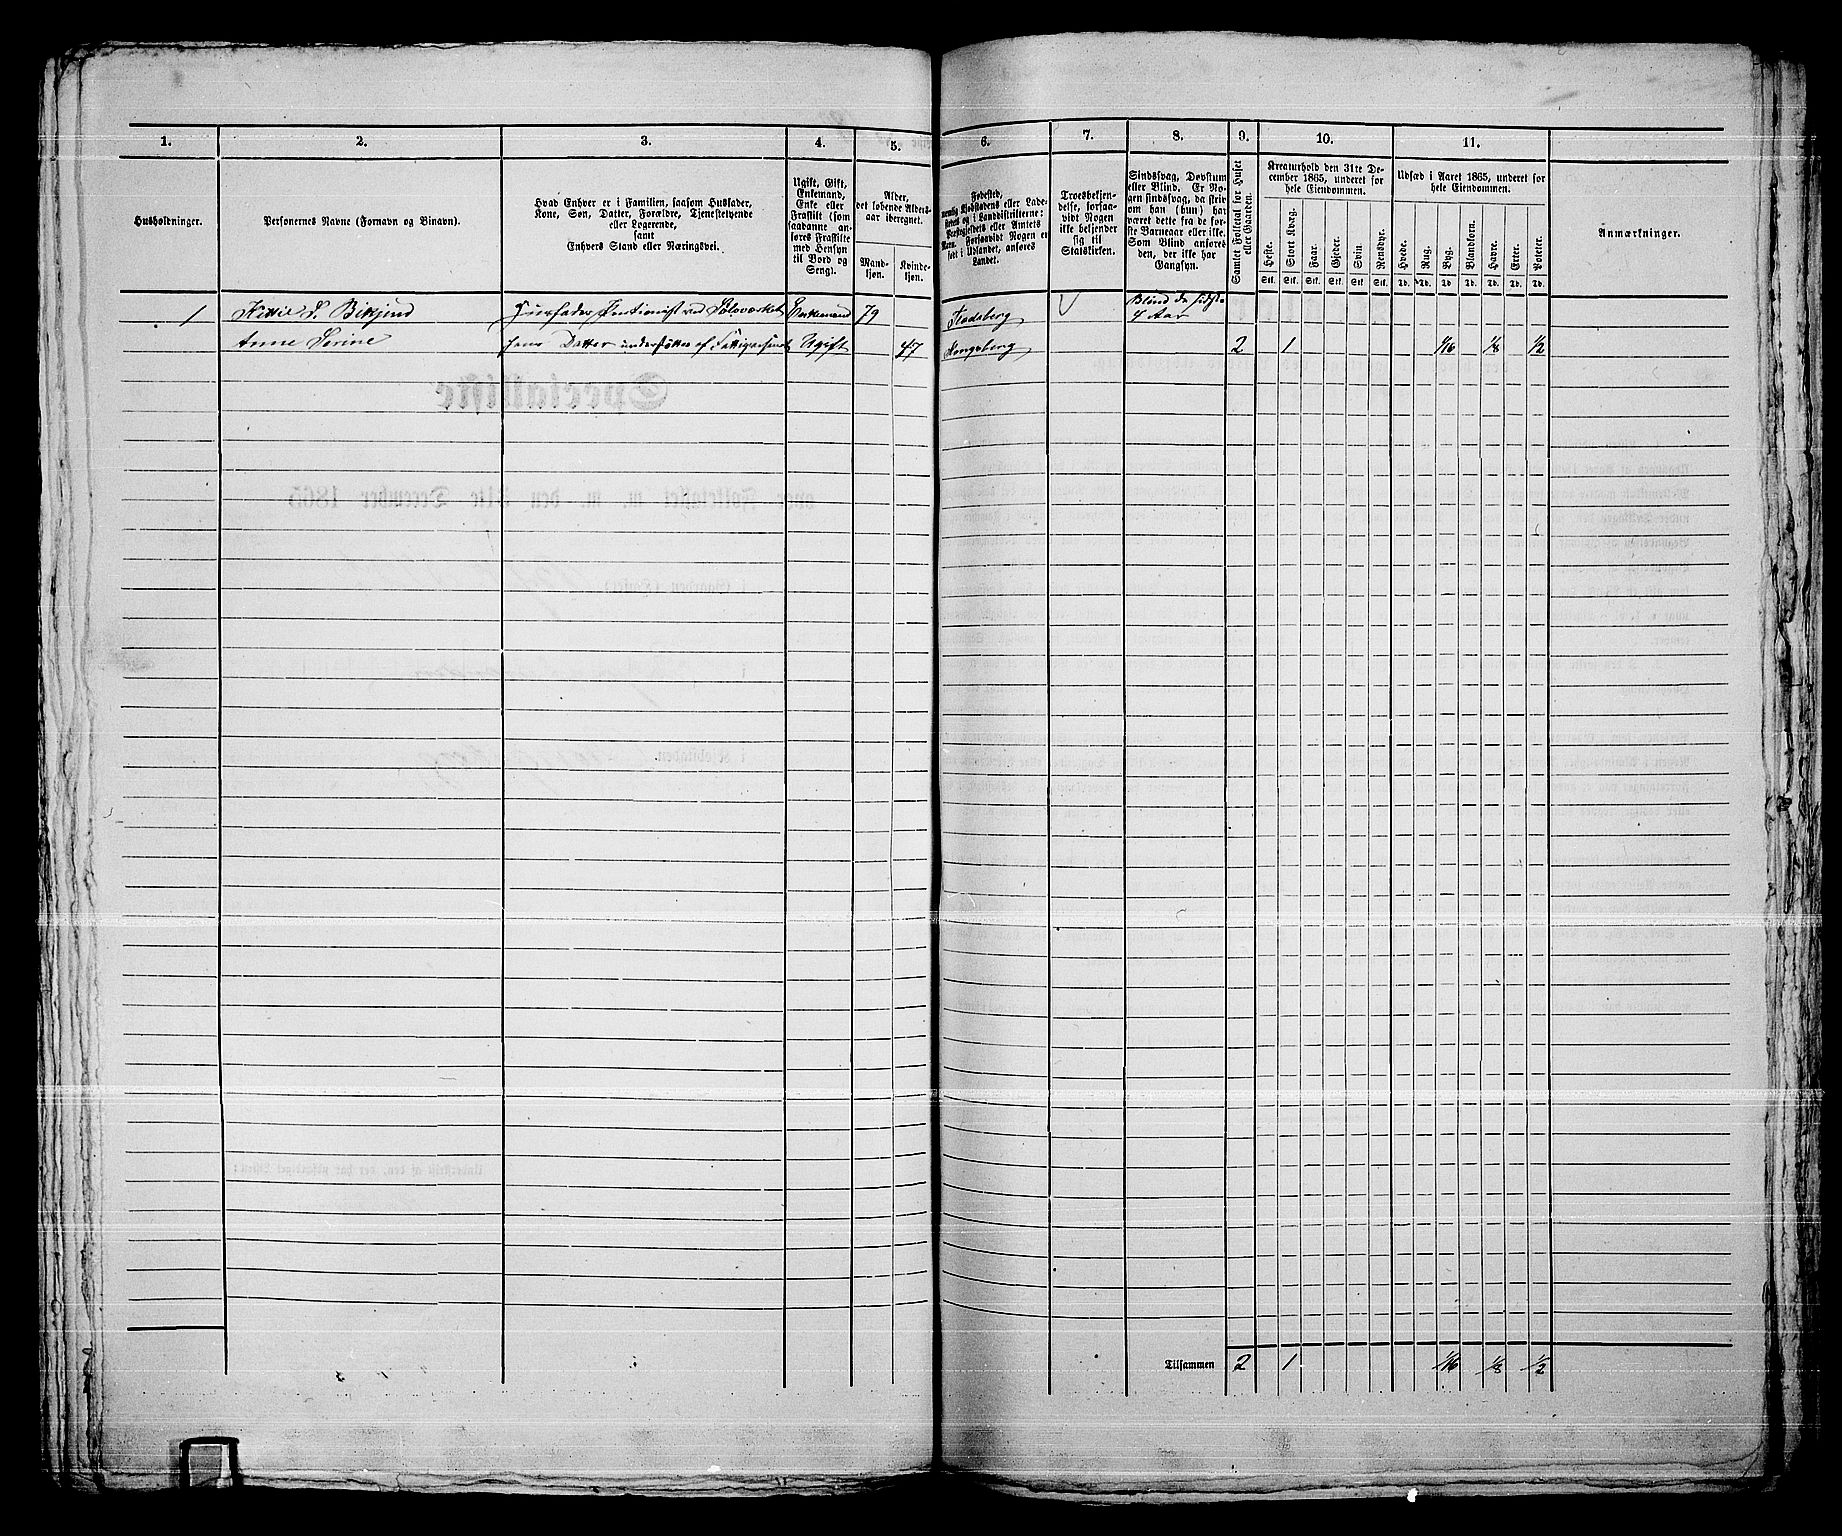 1. 2. 3. 4. 5. 6. 7. 8. 9. 10. 11.
Husholdninger.
Personernes Navne (Fornavn og Binavn).
Hvad Enhver er i Familien, saasom Husfader,
Kone, Søn, Datter, Forældre, Tjenestetyende
eller Logerende,
samt
Enhvers Stand eller Næringsvei.
Ugift, Gift,
Enkemand,
Enke eller
Fraskilt (som
saadanne an-
føres Fraskilte
med Hensyn
til Bord og
Seng).
Alder,
det løbende Alders-
aar iberegnet.
Mand-
kjøn.
Kvinde-
kjøn.
Fødested,
nemlig Kjøbstadens eller Lade-
stedets og i Landdistrikterne:
Præstegjeldets eller Amtets
Navn. Forsaavidt Nogen er
født i Udlandet, anføres
Landet.
Troesbekjen-
delse, forsaa-
vidt Nogen
ikke bekjender
sig til
Statskirken.
Sindssvag, Døvstum
eller Blind. Er No-
gen sindssvag, da skriv
om han (hun) har
været dette fra de før-
ste Barneaar eller ikke.
Som Blind anføres
den, der ikke har
Gangsyn.
Samlet Folketal for Huset
eller Gaarden.
Kreaturhold den 31te De-
cember 1865, underet for
hele Eiendommen.
Heste. Stort Kvæg. Faar. Gjeder. Svin Rensdyr.
Stk. Stk. Stk. Stk. Stk. Stk.
Udsæd i Aaret 1865, underet for
hele Eiendommen.
Hvede. Rug. Byg. Blandkorn. Havre. Erter. Poteter.
Td. Td. Td Td. Td. Td. Td.
Anmærkninger.
1 S. Husfader Pentionist ved Sølvværket Enkemand 79 Blind de sidste
4 Aar
Anne Sørine hans Datter understøttes af Ugift 47 Kongsberg 2 1 1/16 1/8 1/2
Tilsammen 2 1 1/16 1/8 1/2